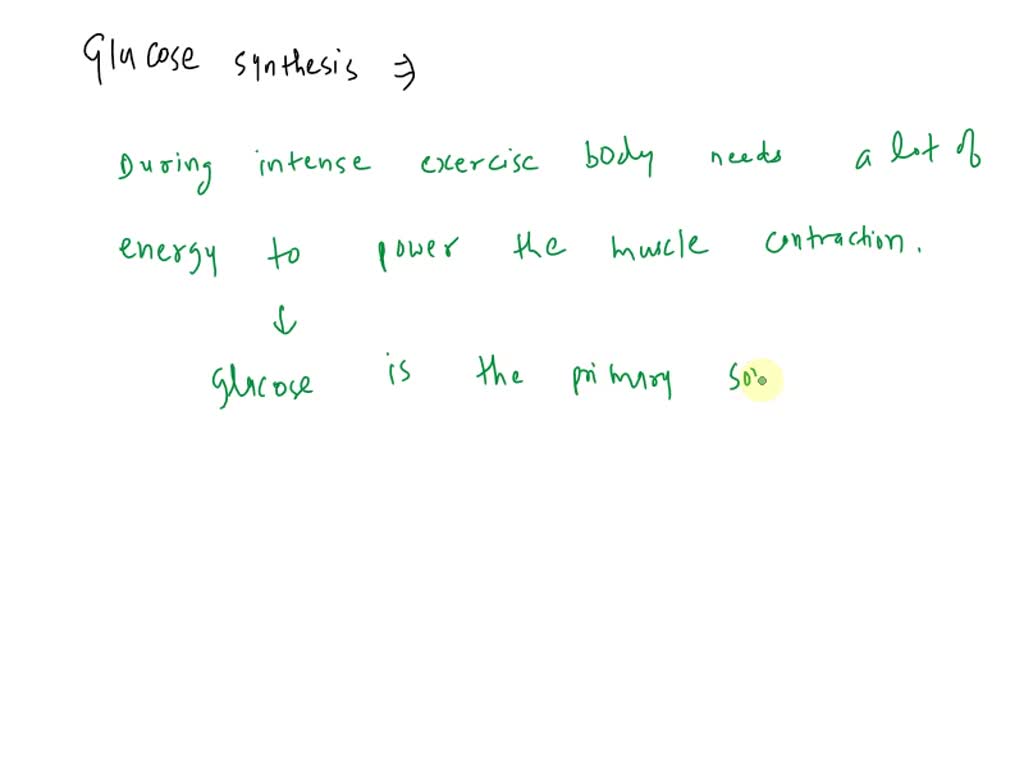 Glucose synthesis ⇒
During intense exercise body needs a lot of
energy to power the muscle contraction.
↓
glucose is the primary